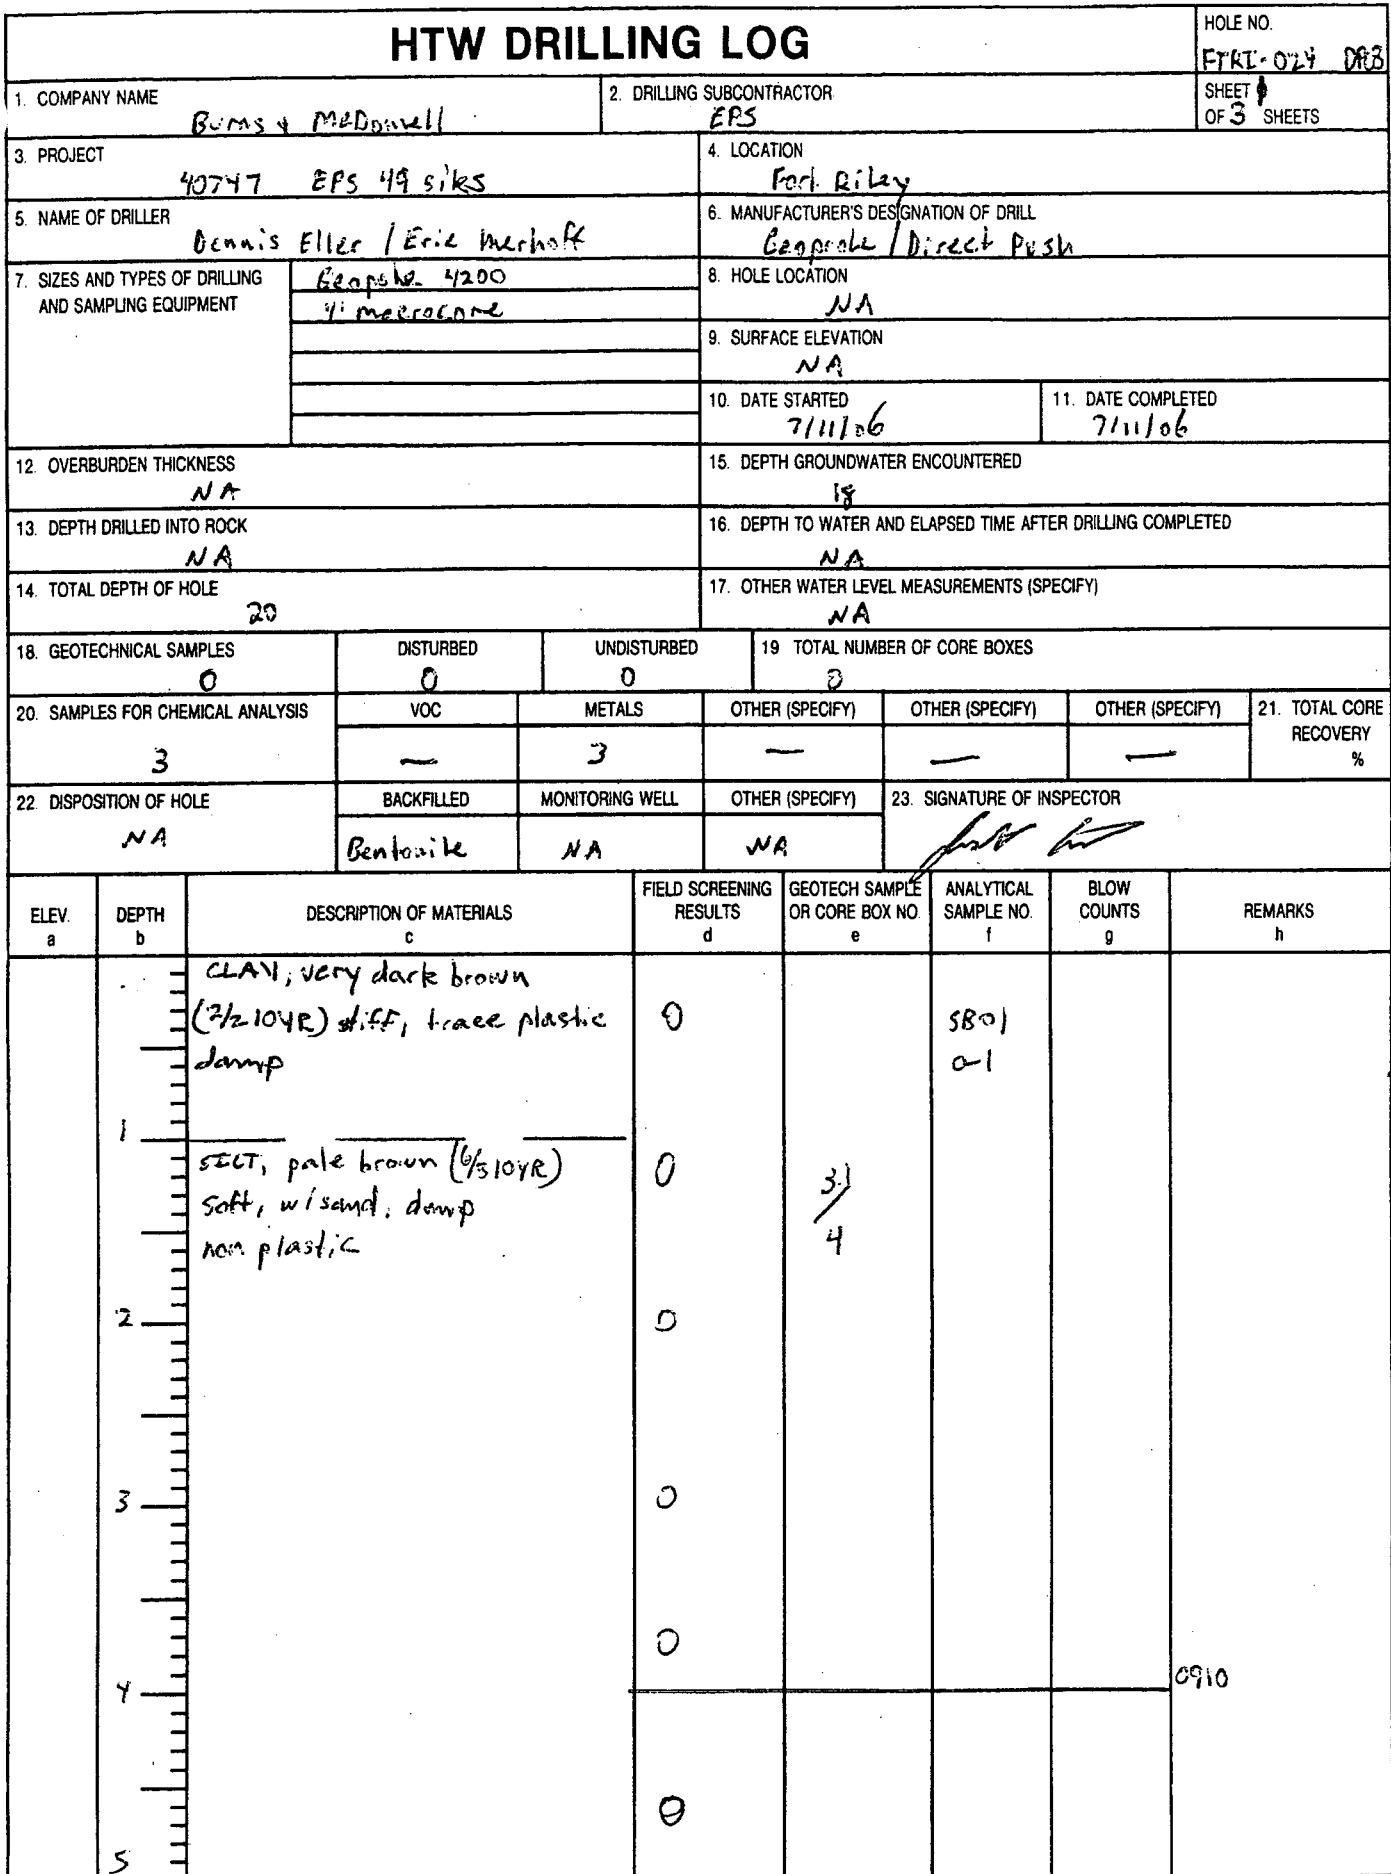 HTW DRILLING LOG
HOLE NO.
FTRI-024
1. COMPANY NAME
Burns & McDonnell
2. DRILLING SUBCONTRACTOR
EPS
SHEET 1
OF 3 SHEETS
3. PROJECT
40747 EPS 49 sites
4. LOCATION
Fort Riley
5. NAME OF DRILLER
Dennis Eller / Eric
6. MANUFACTURER'S DESIGNATION OF DRILL
Geoprobe / Direct Push
7. SIZES AND TYPES OF DRILLING
AND SAMPLING EQUIPMENT
Geoprobe 4200
4' macrocore
8. HOLE LOCATION
NA
9. SURFACE ELEVATION
NA
10. DATE STARTED
7/11/06
11. DATE COMPLETED
7/11/06
12. OVERBURDEN THICKNESS
NA
15. DEPTH GROUNDWATER ENCOUNTERED
18
13. DEPTH DRILLED INTO ROCK
NA
16. DEPTH TO WATER AND ELAPSED TIME AFTER DRILLING COMPLETED
NA
14. TOTAL DEPTH OF HOLE
20
17. OTHER WATER LEVEL MEASUREMENTS (SPECIFY)
NA
18. GEOTECHNICAL SAMPLES
0
DISTURBED
0
UNDISTURBED
0
19 TOTAL NUMBER OF CORE BOXES
0
20. SAMPLES FOR CHEMICAL ANALYSIS
3
VOC
—
METALS
3
OTHER (SPECIFY)
—
OTHER (SPECIFY)
—
OTHER (SPECIFY)
—
21. TOTAL CORE
RECOVERY
%
22. DISPOSITION OF HOLE
NA
BACKFILLED
Bentonite
MONITORING WELL
NA
OTHER (SPECIFY)
NA
23. SIGNATURE OF INSPECTOR
ELEV.
a
DEPTH
b
DESCRIPTION OF MATERIALS
c
FIELD SCREENING
RESULTS
d
GEOTECH SAMPLE
OR CORE BOX NO.
e
ANALYTICAL
SAMPLE NO.
f
BLOW
COUNTS
g
REMARKS
h
CLAY, very dark brown
(2/2 10YR) stiff, trace plastic
damp
0
SB01
0-1
1
SILT, pale brown (6/3 10YR)
soft, w/sand, damp
non plastic
0
3.1
/
4
2
0
3
0
0
4
0910
0
5